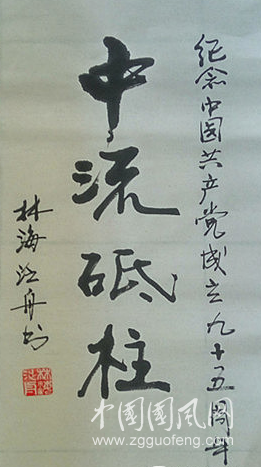 纪念中国共产党成立九十五周年
中流砥柱
林海江舟书
中國國风网
www.zgguofeng.com